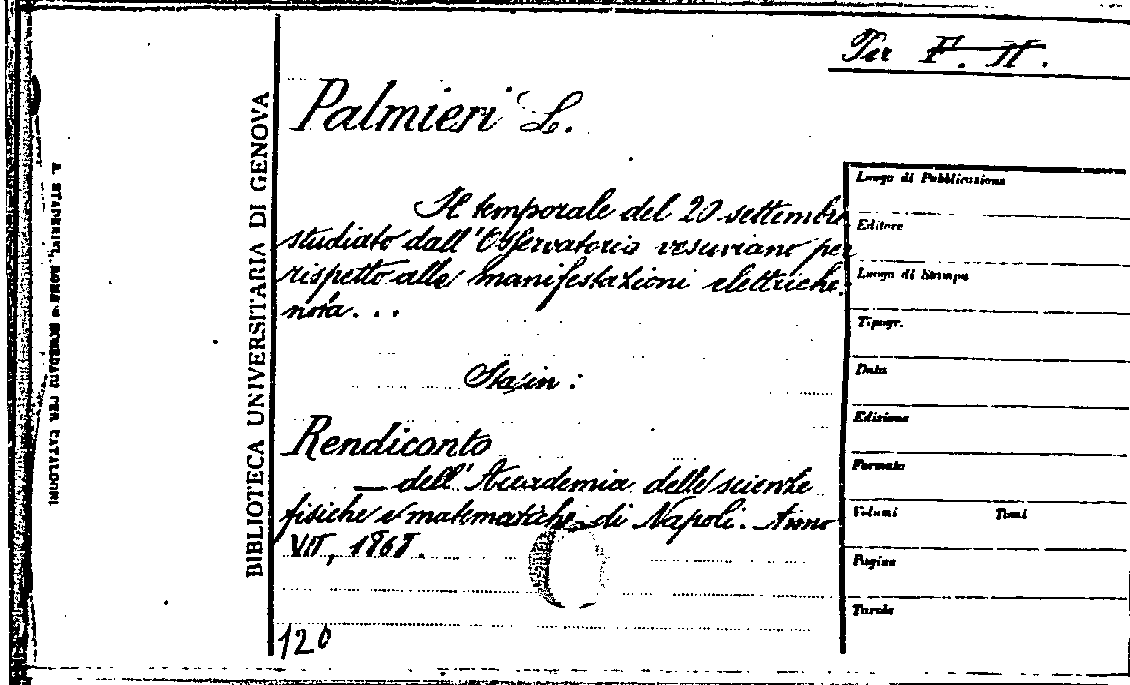 Per F. II.
Palmieri L.
Il temporale del 20 settembre
studiato dall'Osservatorio vesuviano per
rispetto alle manifestazioni elettriche.
nota...
Sta in:
Rendiconto
— dell'Accademia delle scienze
fisiche e matematiche di Napoli. Anno
VII, 1868.
120
BIBLIOTECA UNIVERSITARIA DI GENOVA
A. STADERINI, ROMA SCHEDARI PER CATALOGHI
Luogo di Pubblicazione
Editore
Luogo di Stampa
Tipogr.
Data
Edizione
Formato
Volumi Tomi
Pagine
Tavole